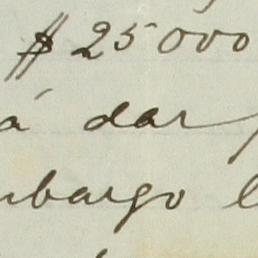 $25000
á dar
mbargo